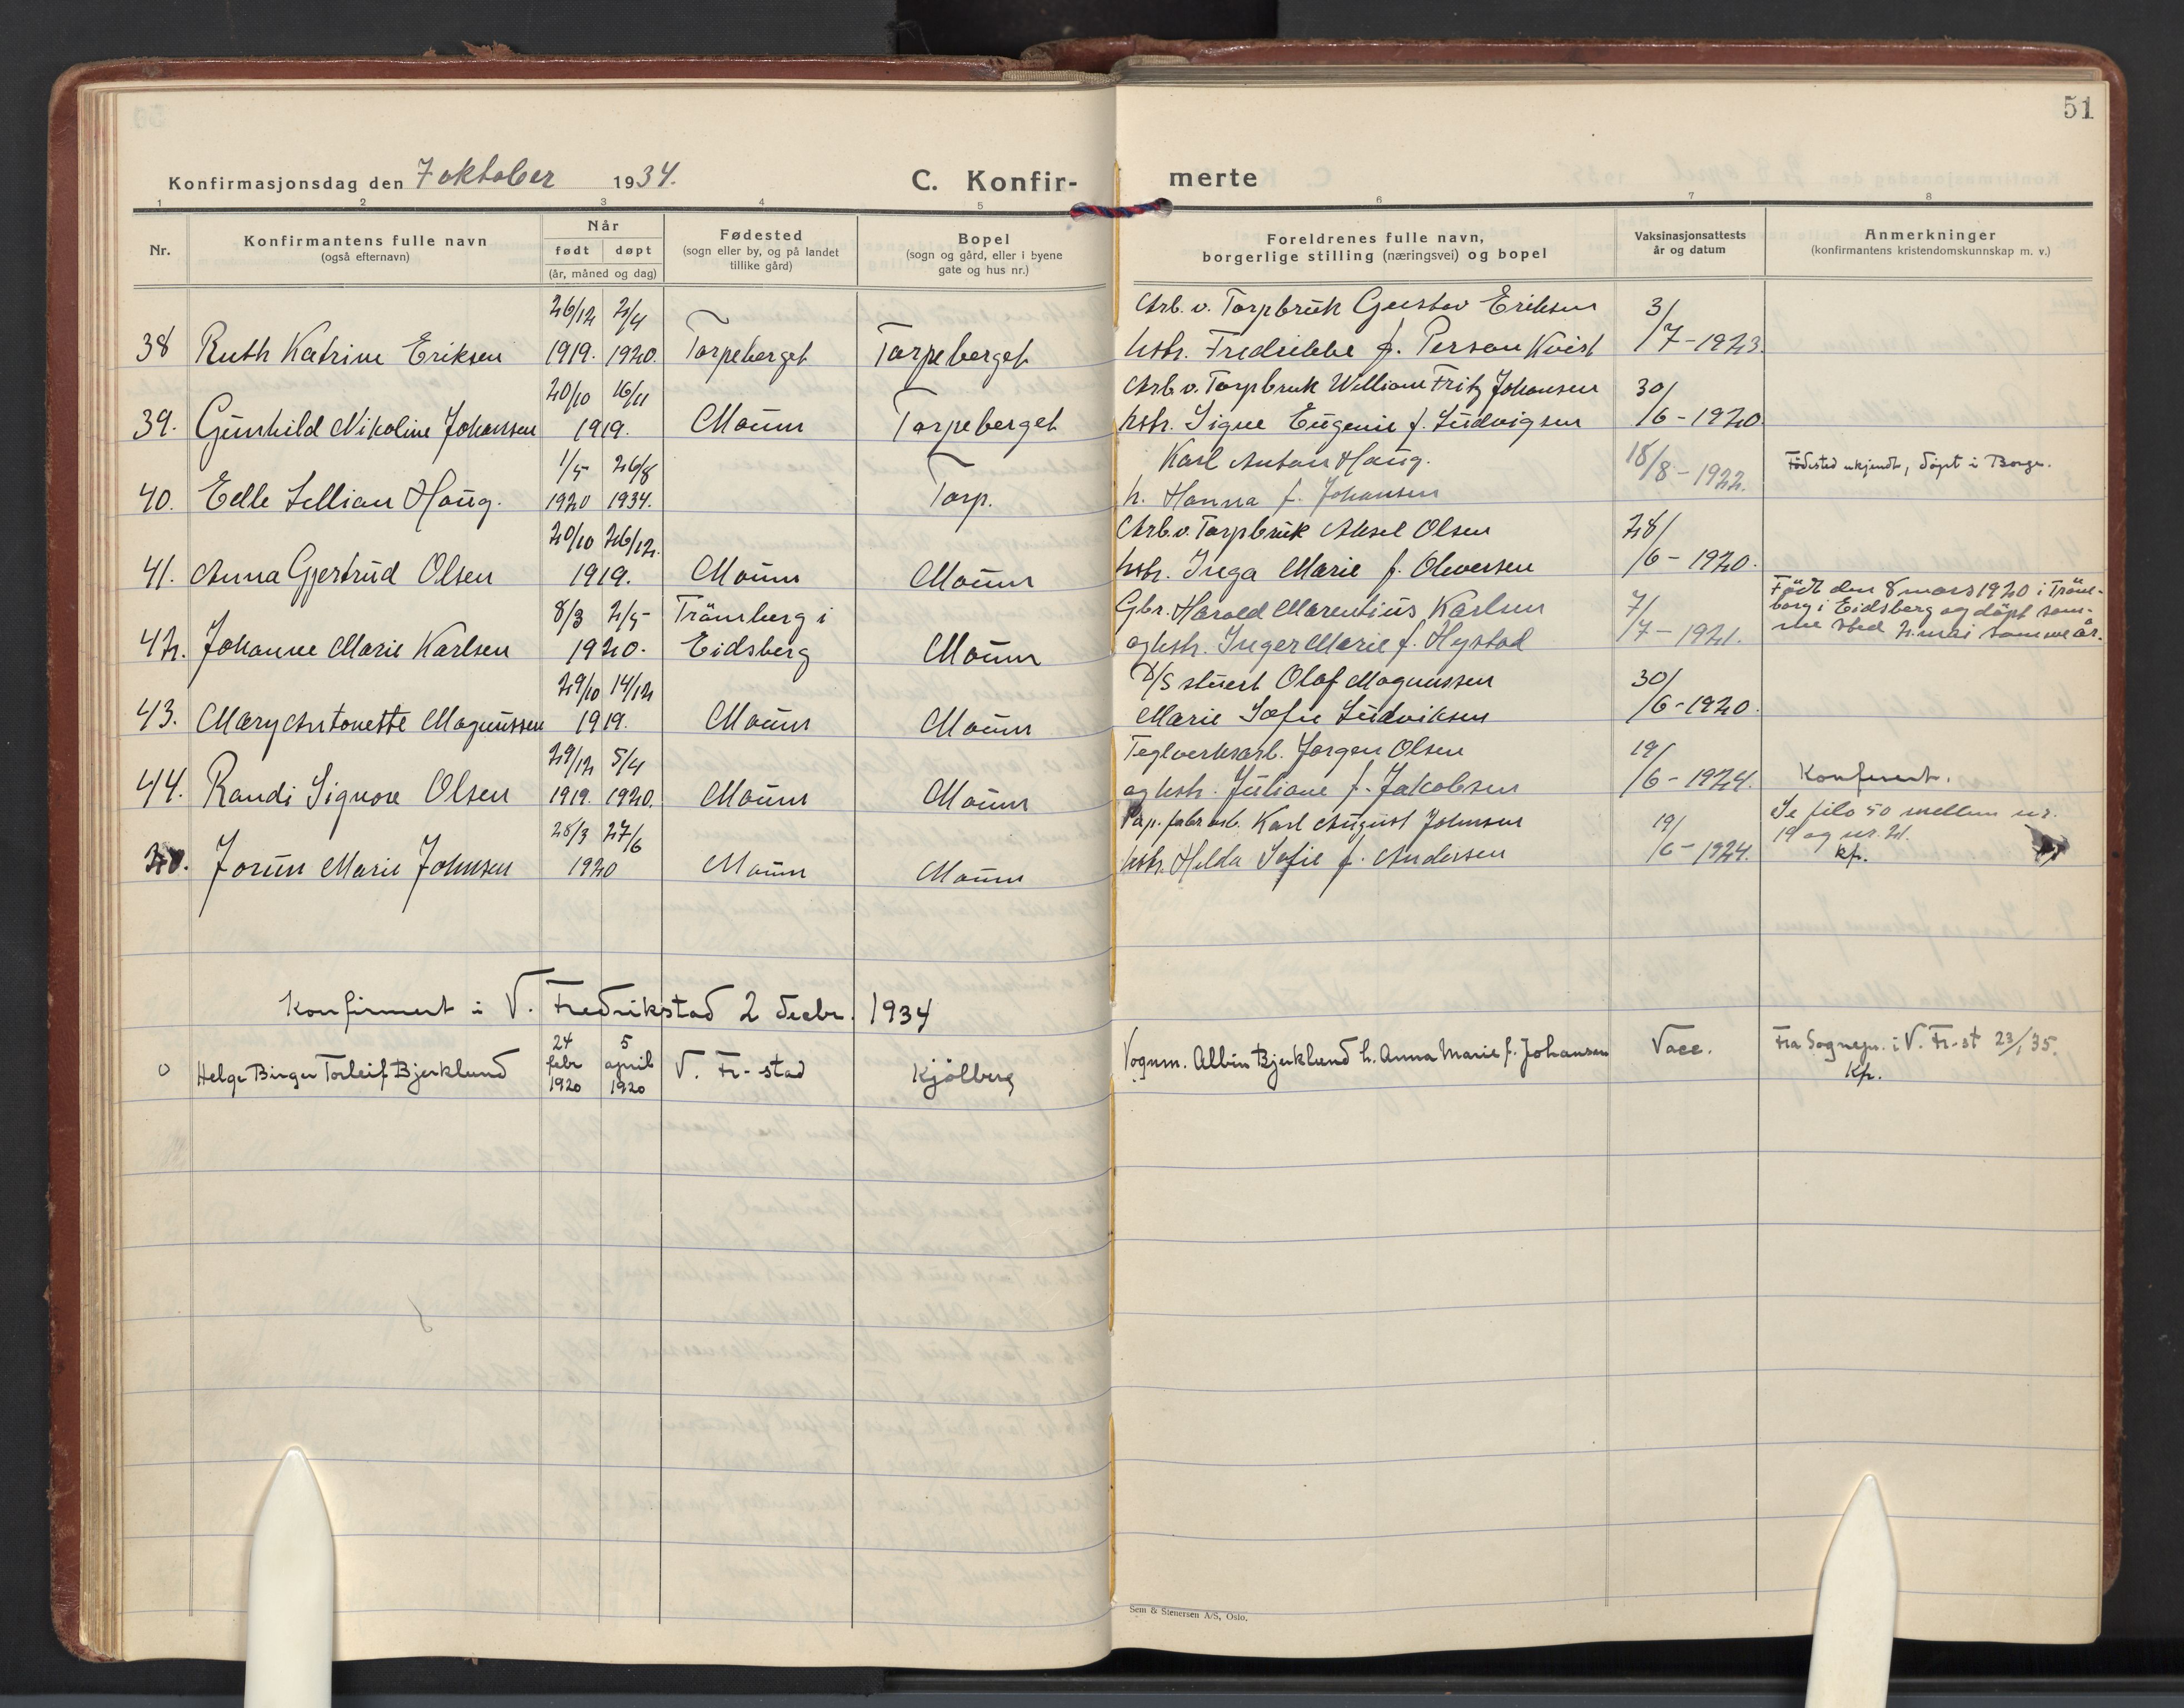 51
Konfirmasjonsdag den 7 oktober 1934.
C. Konfir-merte
1 2 3 4 5 6 7 8
Nr.
Konfirmantens fulle navn
(også efternavn)
Når
født døpt
(år, måned og dag)
Fødested
(sogn eller by, og på landet
tillike gård)
Bopel
(sogn og gård, eller i byene
gate og hus nr.)
Foreldrenes fulle navn,
borgerlige stilling (næringsvei) og bopel
Vaksinasjonsattests
år og datum
Anmerkninger
(konfirmantens kristendomskunnskap m. v.)
26/12 2/4 Arb. v. Torpbruk Gustav Eriksen 3/
38 Ruth Katrine Eriksen 1919. 1920. Torpeberget Torpeberget hstr. Fredrikke f. Persson Kvist /7-1923.
20/10 16/11 Arb. v. Torpbruk William Fritz Johansen 30/
39. Gunhild Nikoline Johansen 1919. Moum Torpeberget hstr. Signe Eugenie f. Ludvigsen /6-1920
1/5 26/8 Karl Anton Haug. 18/8-1922. Födested ukjendt, döpt i Borge.
40. Edle Lillian Haug. 1920 1934. Torp. h. Hanna f. Johansen
20/10 26/12. Arb. v. Torpbruk Aksel Olsen 28/
41. Anna Gjertrud Olsen 1919. Moum Moum hstr. Inga Marie f. Oliversen /6-1920.
8/3 2/5 Trömberg i Gbr. Harald Marentius Karlsen 7/ Födt den 8 mars 1920 i Tröm-
borg i Eidsberg og döpt sam-
42. Johanne Marie Karlsen 1920. Eidsberg Moum og hstr. Inger Marie f. Hystad /7-1921. me sted 2. mai samme år.
29/10 14/12 D/S stuert Olaf Magnussen 30/
43. Mary Antonette Magnussen 1919. Moum Moum Marie Sofie Ludviksen /6-1920.
29/12 5/4 Teglverksarb. Jørgen Olsen 19/
44. Randi Signora Olsen 1919. 1920. Moum Moum og hstr. Juliane f. Jakobsen /6-1924. Konferert.
28/3 27/6 Pap. fabr. arb. Karl August Johnsen 19/ Se filo 50 mellem nr.
19 og nr. 21.
20. Jorun Marie Johnsen 1920 Moum Moum hstr. Hilda Sofie f. Andersen /6-1924. kf.
Konfirmert i V. Fredrikstad 2 decbr. 1934
24 5
0 Helge Birger Torleif Bjerklund febr april V. Fr-stad Kjölberg Vognm. Albin Bjerklund h. Anna Marie f. Johansen Vacc. Fra Sognepr. i V. Fr-st 23/1 35.
1920 1920 Kf.
Sem & Stenersen A/S, Oslo.